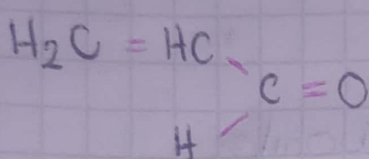 H₂C = HC
C = O
H